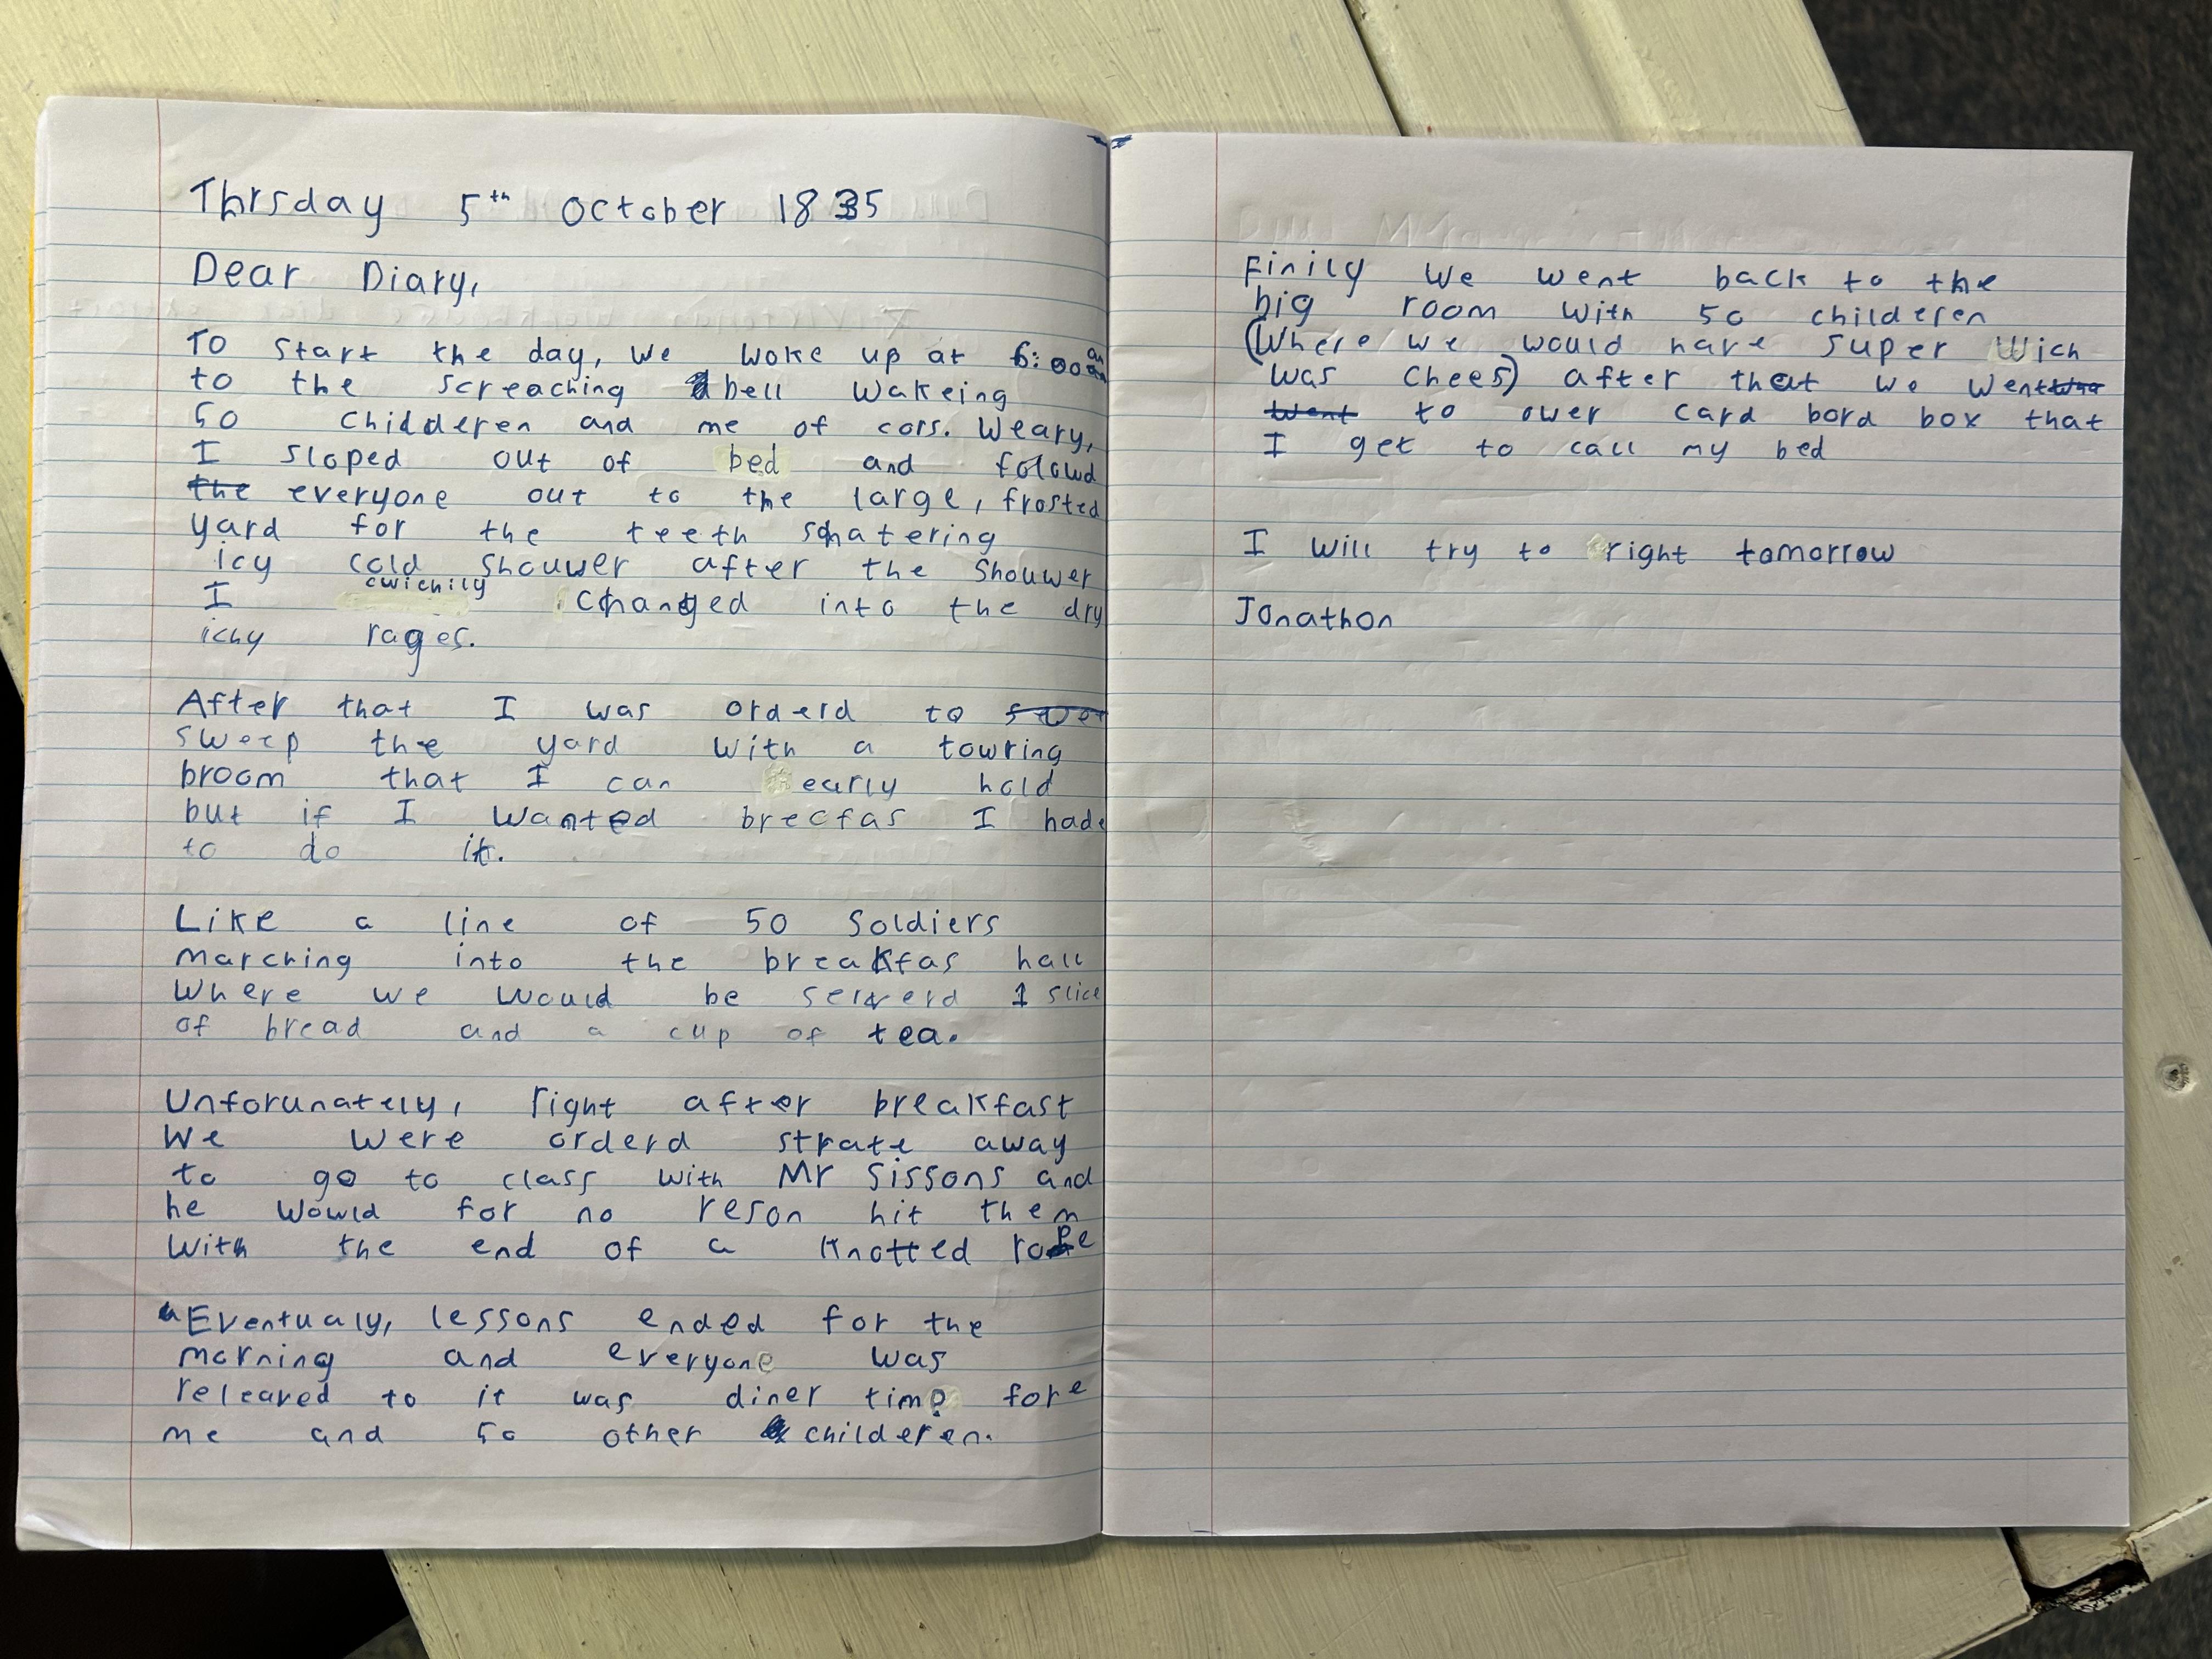 Thrsday 5th October 1835
Dear Diary,
To start the day, we woke up at 6:00am
to the screaching bell wakeing
50 childderen and me of cors. Weary,
I sloped out of bed and folowd
the everyone out to the large, frosted
yard for the teeth schatering
icy cold shouwer after the shouwer
I cwichily changed into the dry
ichy rages.
After that I was orderd to
sweep the yard with a towring
broom that I can early hold
but if I wanted brecfas I hade
to do it.
Like a line of 50 soldiers
marching into the breakfas hall
where we would be serverd 1 slice
of bread and a cup of tea.
Unforunately, right after breakfast
we were orderd strate away
to go to class with Mr Sissons and
he wowld for no reson hit them
with the end of a knotted rope
Eventualy, lessons ended for the
morning and everyone was
releared to it was diner time fore
me and 50 other childeren.
Finily we went back to the
big room with 50 childeren
(Where we would have super wich
was chees) after that we went
went to ower card bord box that
I get to call my bed
I will try to right tomorrow
Jonathon